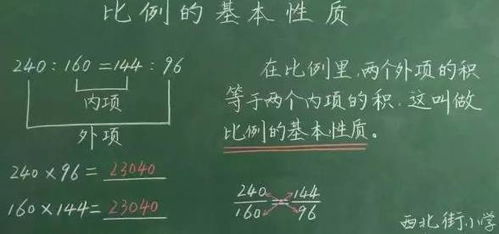 比例的基本性质
240:160=144:96
内项
外项
240×96=23040
160×144=23040
在比例里,两个外项的积
等于两个内项的积.这叫做
比例的基本性质。
240/160=144/96
西北街小学